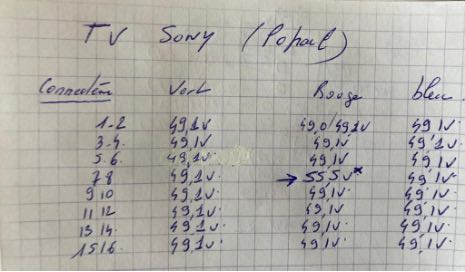 TV Sony (Popaul)
Connection Vert Rouge bleu
1-2 49,1v 49,0/49,1v 49,1v
3-4 49,1v 49,1v 49,1v
5-6 49,1v 49,1v 49,1v
7 8 49,1v → 55,5v* 49,1v
9 10 49,1v 49,1v 49,1v
11 12 49,1v 49,1v 49,1v
13 14 49,1v 49,1v 49,1v
15 16 49,1v 49,1v 49,1v